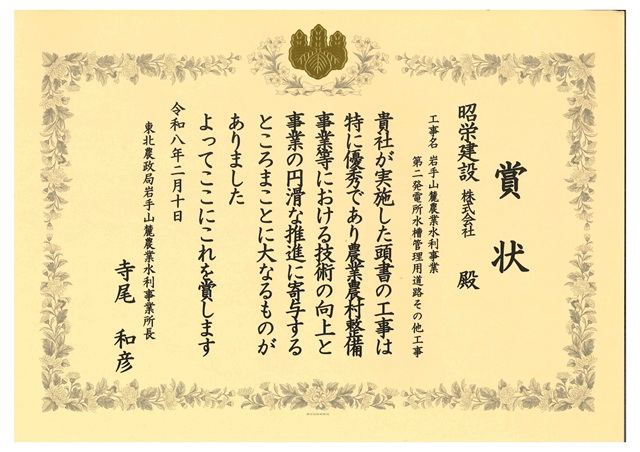 賞状
昭栄建設 株式会社 殿
工事名 岩手山麓農業水利事業
第二発電所水槽管理用道路その他工事
貴社が実施した頭書の工事は
特に優秀であり農業農村整備
事業等における技術の向上と
事業の円滑な推進に寄与する
ところまことに大なるものが
ありました
よってここにこれを賞します
令和八年二月十日
東北農政局岩手山麓農業水利事業所長
寺尾 和彦